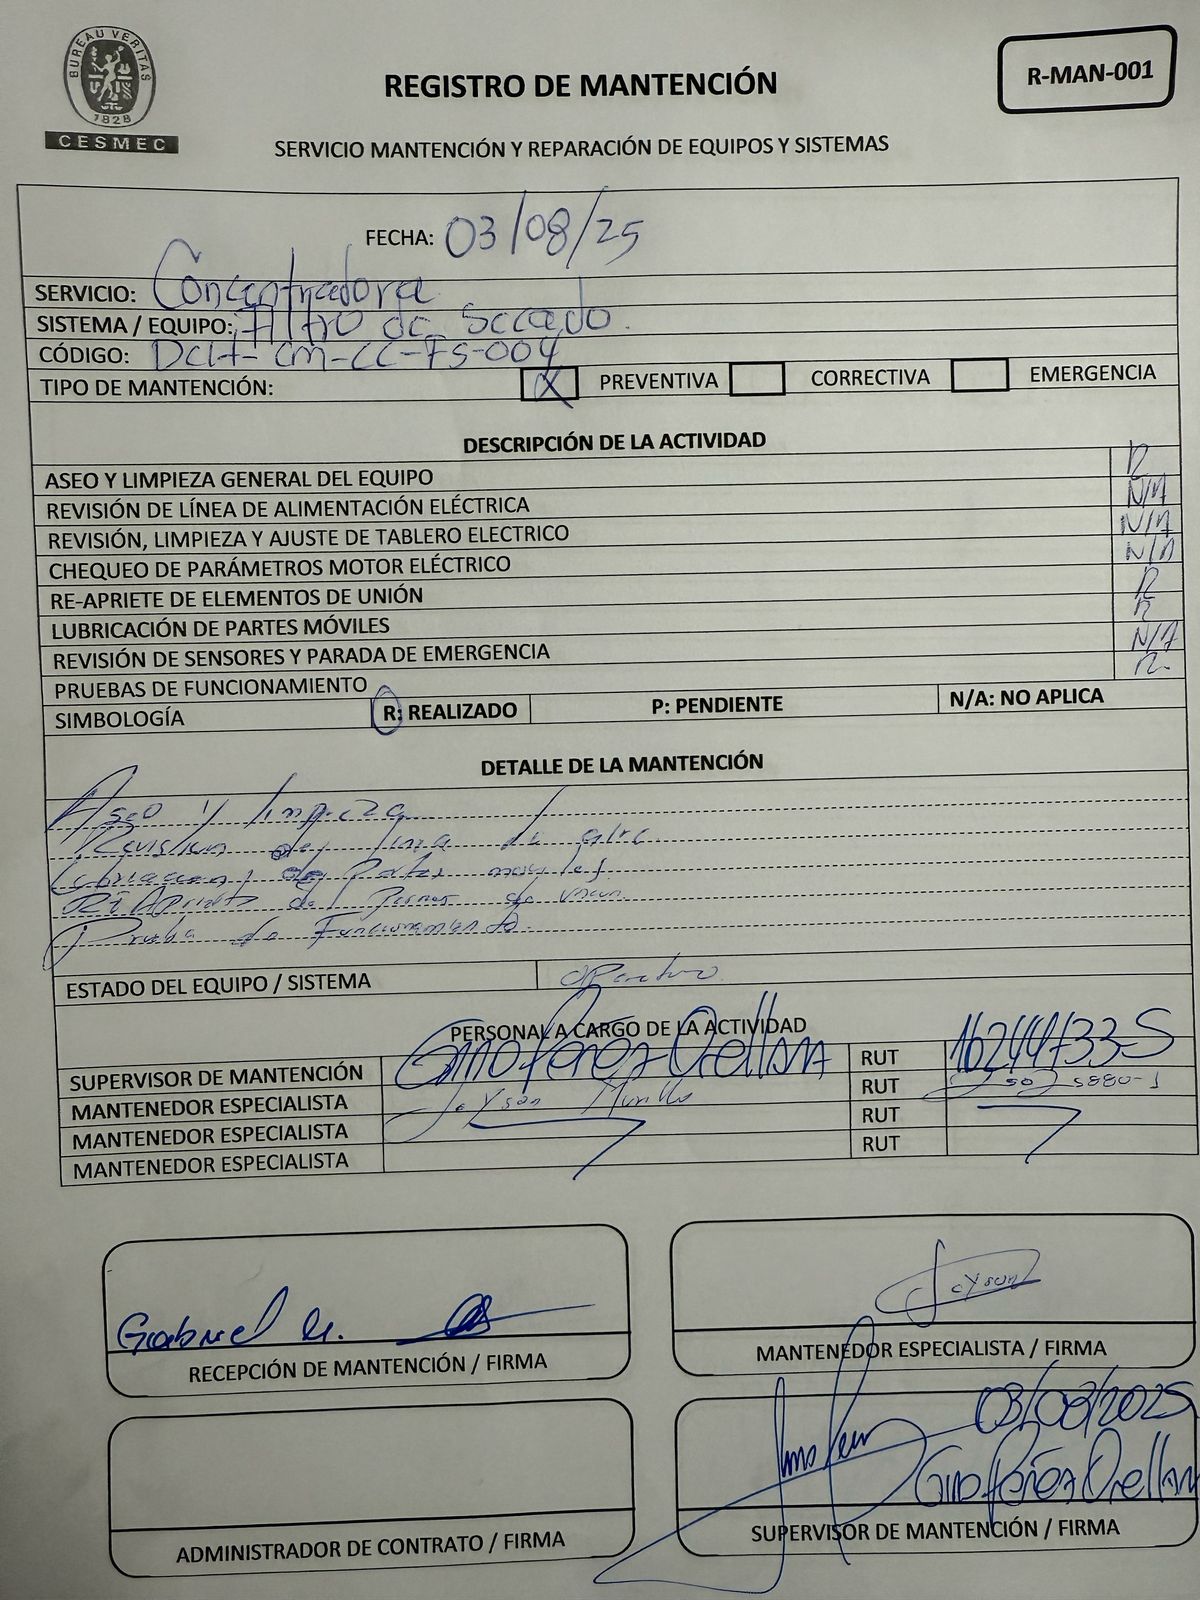 BUREAU VERITAS
1828
CESMEC
REGISTRO DE MANTENCIÓN
R-MAN-001
SERVICIO MANTENCIÓN Y REPARACIÓN DE EQUIPOS Y SISTEMAS
FECHA: 03/08/25
SERVICIO: Concentradora
SISTEMA / EQUIPO: Filtro de Secado.
CÓDIGO: DCH-CM-CC-FS-004
TIPO DE MANTENCIÓN: X PREVENTIVA CORRECTIVA EMERGENCIA
DESCRIPCIÓN DE LA ACTIVIDAD
ASEO Y LIMPIEZA GENERAL DEL EQUIPO R
REVISIÓN DE LÍNEA DE ALIMENTACIÓN ELÉCTRICA N/A
REVISIÓN, LIMPIEZA Y AJUSTE DE TABLERO ELECTRICO N/A
CHEQUEO DE PARÁMETROS MOTOR ELÉCTRICO N/A
RE-APRIETE DE ELEMENTOS DE UNIÓN R
LUBRICACIÓN DE PARTES MÓVILES R
REVISIÓN DE SENSORES Y PARADA DE EMERGENCIA N/A
PRUEBAS DE FUNCIONAMIENTO R
SIMBOLOGÍA R: REALIZADO P: PENDIENTE N/A: NO APLICA
DETALLE DE LA MANTENCIÓN
Aseo y limpieza
Revision de linea de aire
Lubricacion de Partes moviles
ReAPriete de Pernos de union
Prueba de Funcionamiento.
ESTADO DEL EQUIPO / SISTEMA OPerativo
PERSONAL A CARGO DE LA ACTIVIDAD
SUPERVISOR DE MANTENCIÓN Gino Pérez Orellana RUT 16244733-5
MANTENEDOR ESPECIALISTA Jeyson Murillo RUT
MANTENEDOR ESPECIALISTA RUT
MANTENEDOR ESPECIALISTA RUT
Gabriel U.
RECEPCIÓN DE MANTENCIÓN / FIRMA
Jeyson
MANTENEDOR ESPECIALISTA / FIRMA
ADMINISTRADOR DE CONTRATO / FIRMA
03/08/2025
Gino Pérez Orellana
SUPERVISOR DE MANTENCIÓN / FIRMA